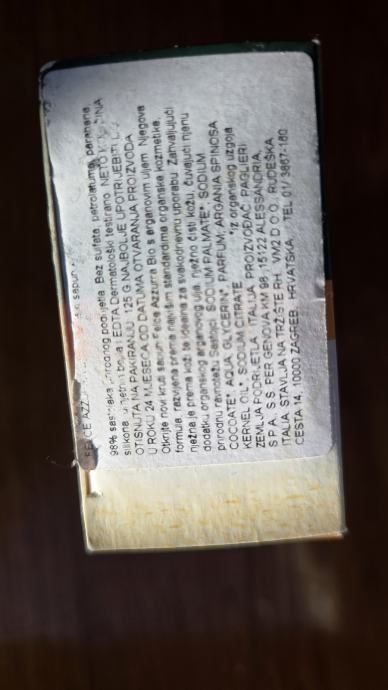 FELCE AZZ sapun
98% sastojaka prirodnog podrijetla. Bez sulfata, petrolatuma, parabena,
silikona, umjetnih boja i EDTA Dermatološki testirano. NETO KOLIČINA
OTISNUTA NA PAKIRANJU: 125 G NAJBOLJE UPOTRIJEBITI
U ROKU 24 MJESECA OD DATUMA OTVARANJA PROIZVODA
Otkrijte novi kruti sapun Felce Azzurra Bio s arganovim uljem. Njegova
formula, razvijena prema najvišim standardima organske kozmetike,
nježna je prema koži te idealna za svakodnevnu uporabu. Zahvaljujući
dodatku organskog arganovog ulja, nježno čisti kožu, čuvajući njenu
prirodnu ravnotežu Sastojci: SODIUM PALMATE*, SODIUM
COCOATE*, AQUA, GLYCERIN*, PARFUM, ARGANIA SPINOSA
KERNEL OIL*, SODIUM CITRATE. *iz organskog uzgoja
ZEMLJA PODRIJETLA: ITALIJA. PROIZVOĐAČ: PAGLIERI
S.P.A., S.S. PER GENOVA KM 98, 15122 ALESSANDRIA,
ITALIA. STAVLJA NA TRŽIŠTE RH: VM2 D.O.O., RUDEŠKA
CESTA 14, 10000 ZAGREB, HRVATSKA. TEL 01/ 3867-180